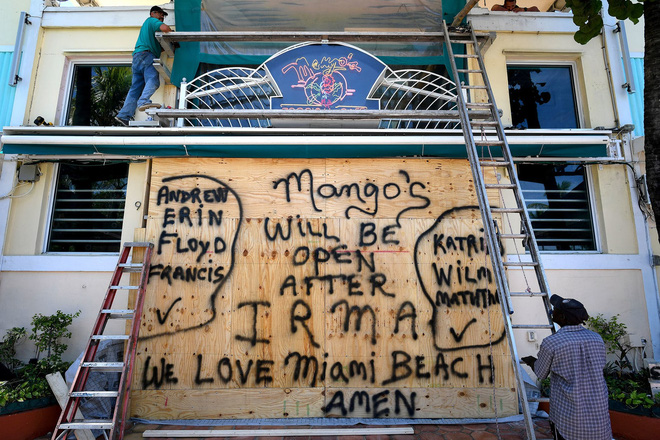 Mango's
9
ANDREW
ERIN
FLOYD
FRANCIS
Mango's
WILL BE
OPEN
AFTER
IRMA
KATRI
WILM
WE LOVE Miami BEACH
AMEN